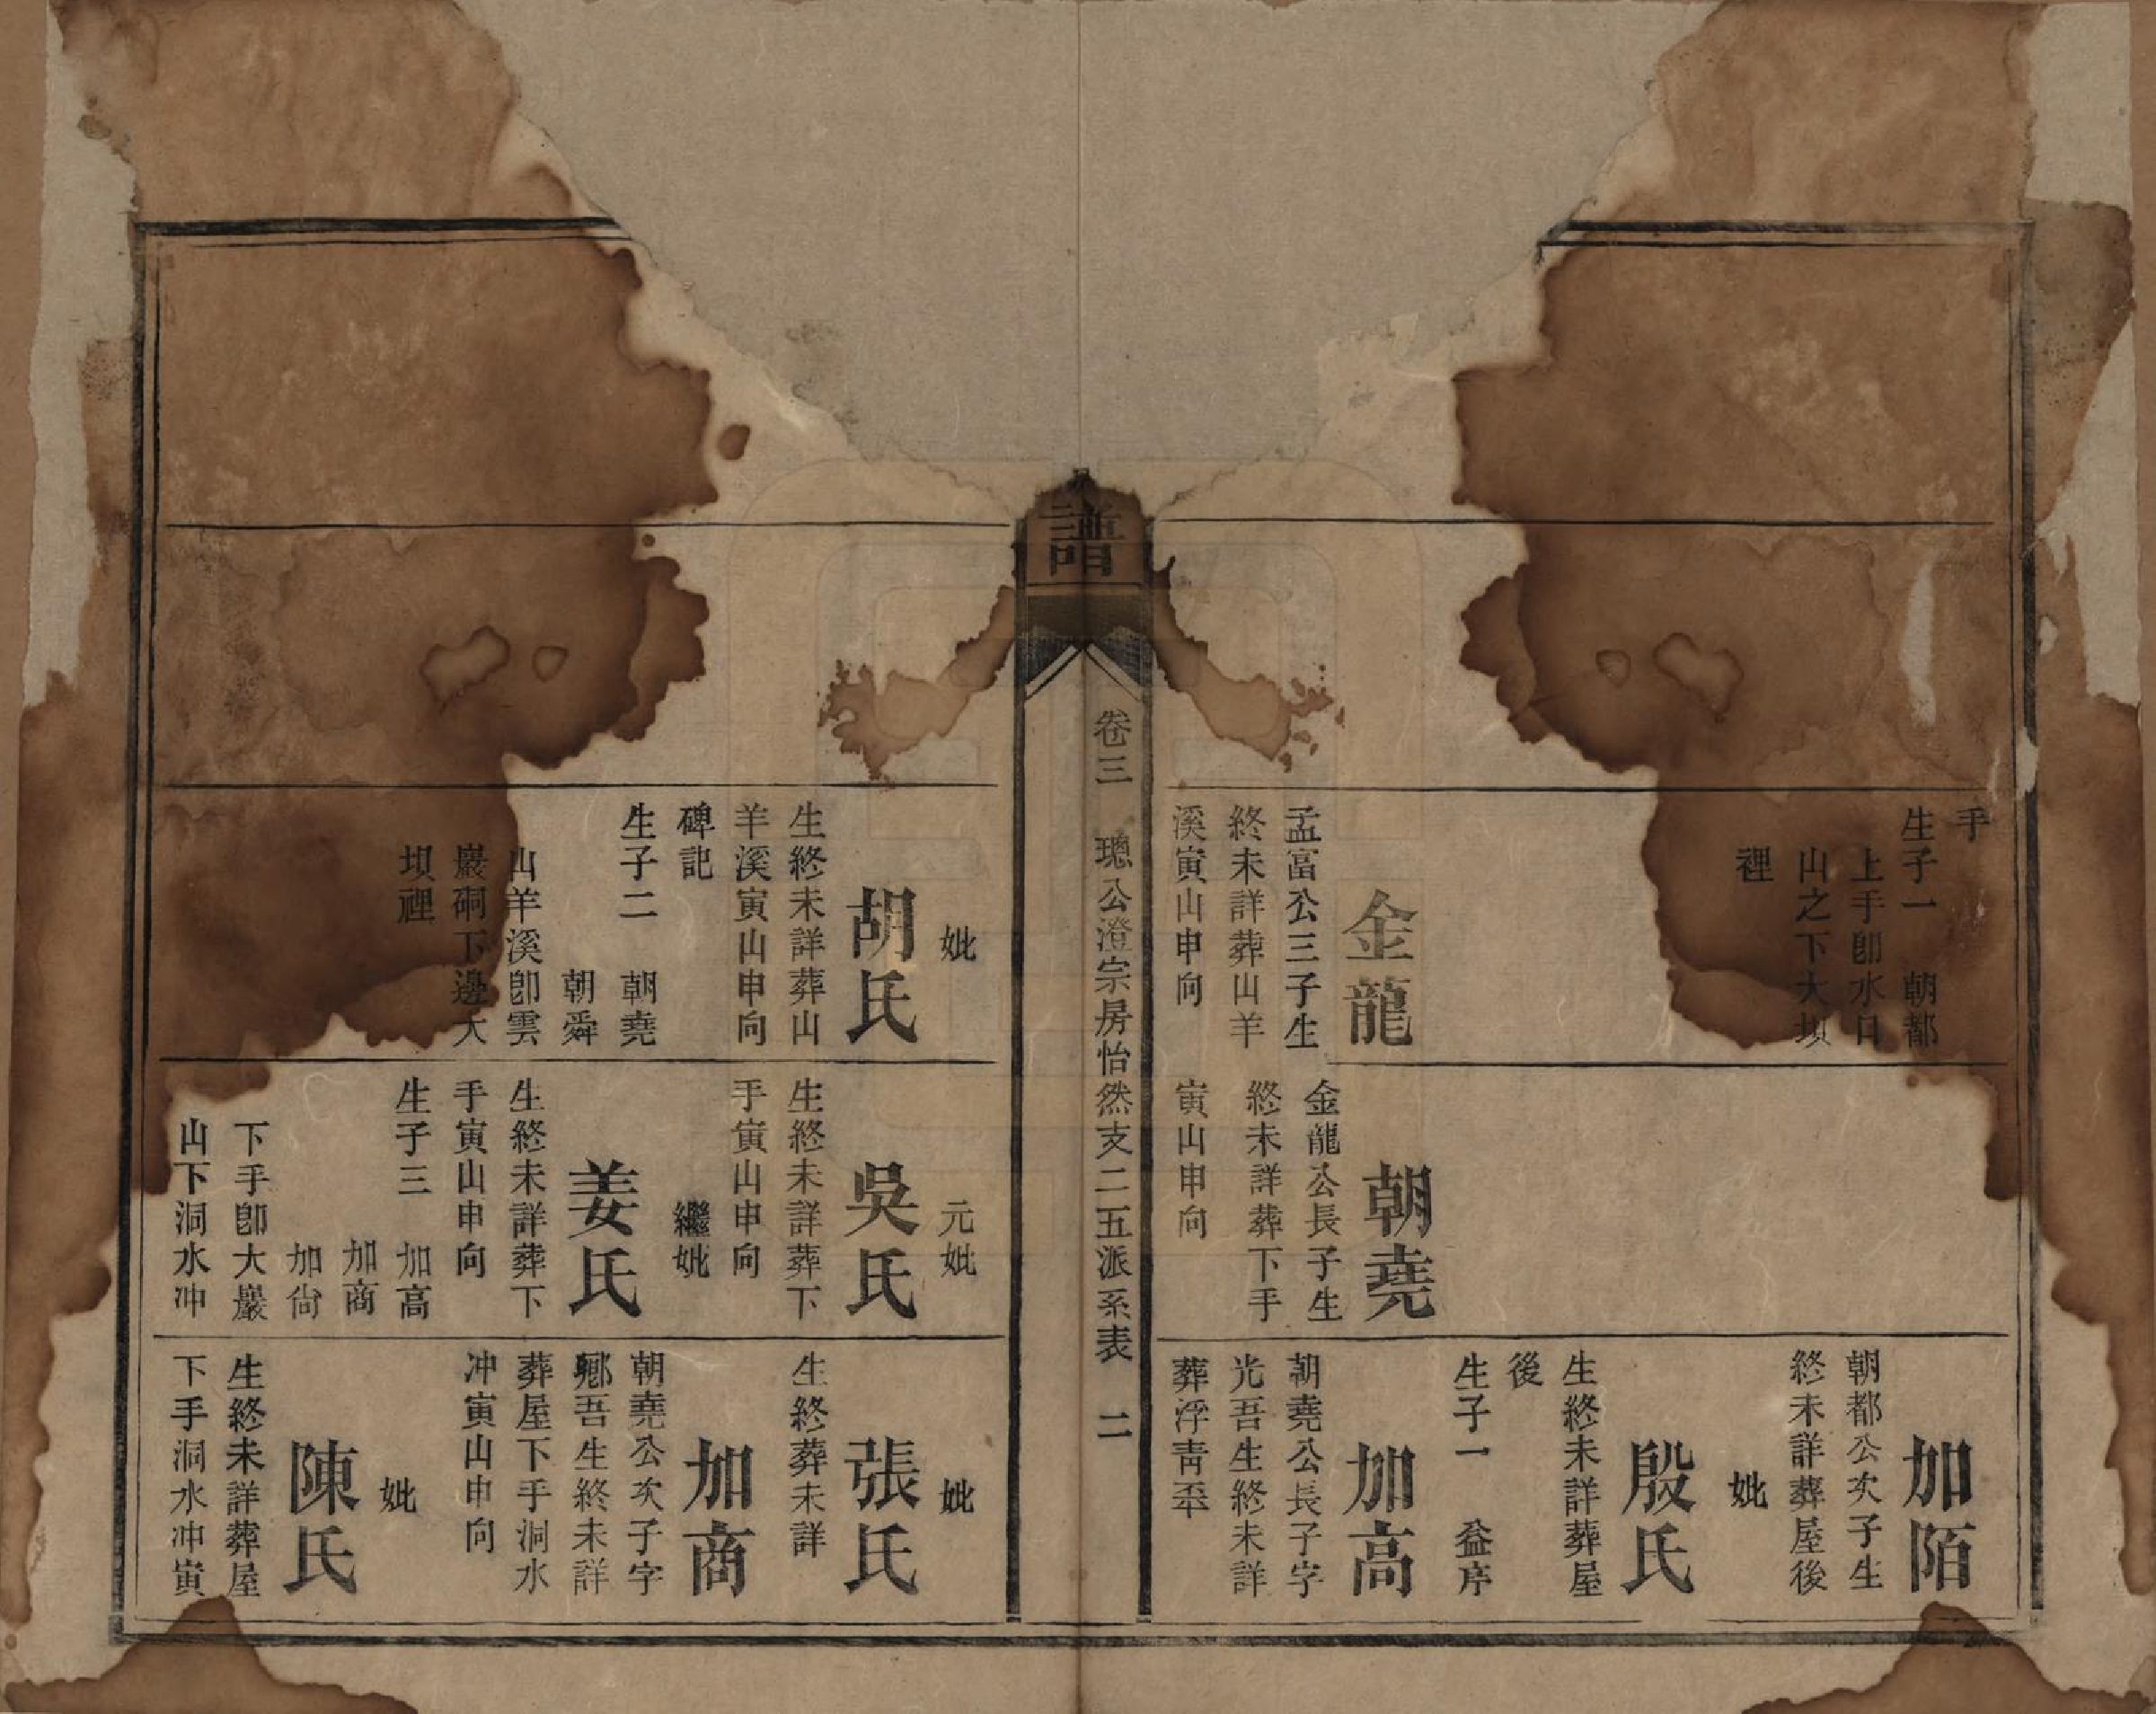 手
生子一　朝都
上手卽水口
山之下大垻
裡
金龍
孟富公三子生
終未詳葬山羊
溪寅山申向
朝堯
金龍公長子生
終未詳葬下手
寅山申向
加陌
朝都公次子生
終未詳葬屋後
妣
殷氏
生終未詳葬屋
後
生子一　益序
加高
朝堯公長子字
光吾生終未詳
葬浮青坪
譜
卷三　璁公澄宗房怡然支二五派系表　二
妣
胡氏
生終未詳葬山
羊溪寅山申向
碑記
生子二　朝堯
朝舜
山羊溪卽雲
巖硐下邊大
垻裡
元妣
吳氏
生終未詳葬下
手寅山申向
繼妣
姜氏
生終未詳葬下
手寅山申向
生子三　加高
加商
加尙
下手卽大巖
山下洞水冲
妣
張氏
生終葬未詳
加商
朝堯公次子字
鄉吾生終未詳
葬屋下手洞水
冲寅山申向
妣
陳氏
生終未詳葬屋
下手洞水冲寅